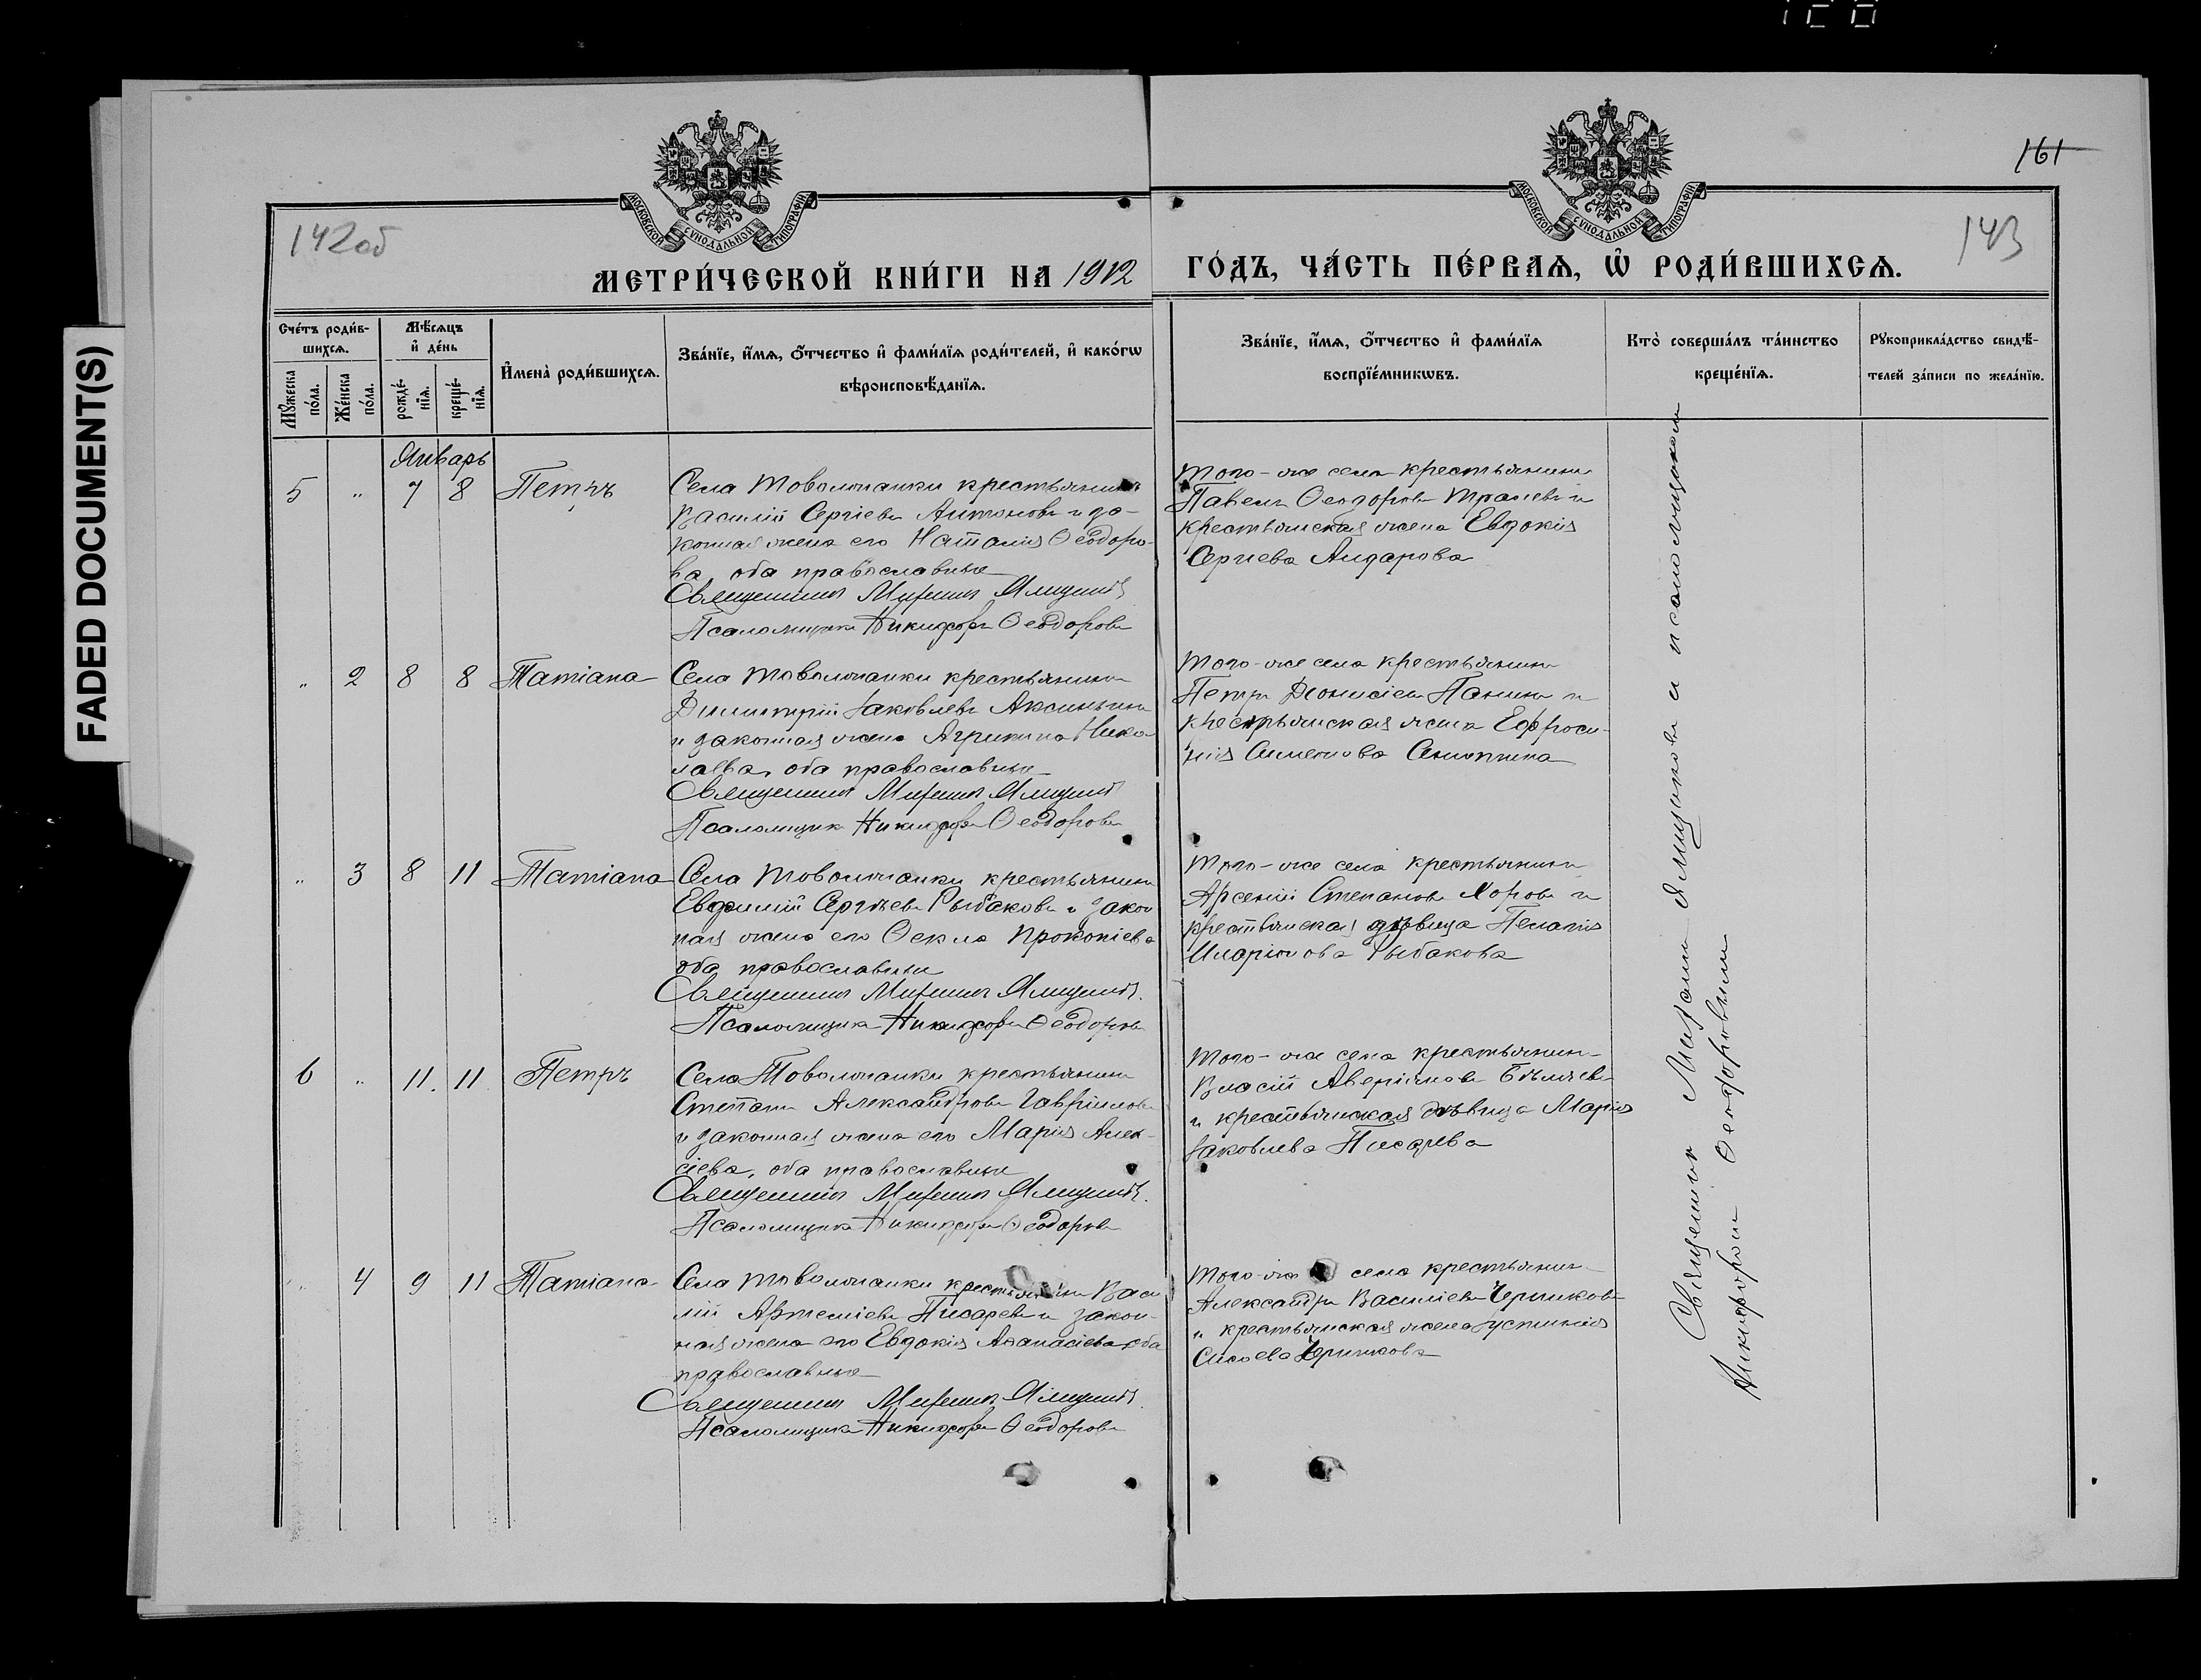 FADED DOCUMENT(S)
161
142об
143
МОСКОВСКОЙ СѴНОДАЛЬНОЙ ТИПОГРАФІИ
МОСКОВСКОЙ СѴНОДАЛЬНОЙ ТИПОГРАФІИ
МЕТРИ́ЧЕСКОЙ КНИ́ГИ НА 1912 ГО́ДЪ, ЧА́СТЬ ПЕ́РВАѦ, Ѡ҆ РОДИ́ВШИХСѦ.
Сче́тъ роди́в-
шихсѧ.
Мꙋ́жеска по́ла.
Же́нска по́ла.
Мѣ́сѧцъ
и҆ де́нь
рожде́-
нїѧ.
креще́-
нїѧ.
И҆мена̀ роди́вшихсѧ.
Зва́нїе, и҆́мѧ, ѻ҆́тчество и҆ фами́лїѧ роди́телей, и҆ како́гѡ
вѣроисповѣ́данїѧ.
Зва́нїе, и҆́мѧ, ѻ҆́тчество и҆ фами́лїѧ
воспрїе́мникѡвъ.
Кто̀ соверша́лъ та́инство
креще́нїѧ.
Рꙋкоприкла́дство свидѣ́-
телей за́писи по жела́нїю.
Январь
5 " 7 8 Петръ
Села Товолжанки крестьянинъ
Василій Сергіевъ Антоновъ и за-
конная жена его Наталія Ѳеодоро-
ва, оба православные
Священникъ Миронъ Ямщиковъ
Псаломщикъ Никифоръ Ѳеодоровъ
Того-же села крестьянинъ
Павелъ Ѳеодоровъ и
крестьянская жена Евдокія
Сергіева
" 2 8 8 Татіана
Села Товолжанки крестьянинъ
Димитрій Іаковлевъ Аксиньинъ
и законная жена Агрипина Нико-
лаева, оба православные
Священникъ Миронъ Ямщиковъ
Псаломщикъ Никифоръ Ѳеодоровъ
Того-же села крестьянинъ
Петръ Діонисіевъ Панинъ и
крестьянская жена Ефроси-
нія Симеонова
" 3 8 11 Татіана
Села Товолжанки крестьянинъ
Евфимій Сергѣевъ Рыбаковъ и закон
ная жена его Ѳекла Прокопіева
оба православные
Священникъ Миронъ Ямщиковъ.
Псаломщикъ Никифоръ Ѳеодоровъ
Того-же села крестьянинъ
Арсеній Степановъ и
крестьянская дѣвица Пелагія
Иларіонова Рыбакова
6 " 11. 11 Петръ
Села Товолжанки крестьянинъ
Степанъ Александровъ Гавриловъ
и законная жена его Марія Алек-
сіева, оба православные
Священникъ Миронъ Ямщиковъ.
Псаломщикъ Никифоръ Ѳеодоровъ
Того-же села крестьянинъ
Власій Аверіановъ Бѣляевъ
и крестьянская дѣвица Марія
Іаковлева Писарева
4 9 11 Татіана
Села Товолжанки крестьянинъ Васи
лій Артеміевъ Писаревъ и закон-
ная жена его Евдокія Аѳанасіева, оба
православные
Священникъ Миронъ Ямщиковъ.
Псаломщикъ Никифоръ Ѳеодоровъ
Того-же села крестьянинъ
Александръ Василіевъ Черниковъ
и крестьянская жена Іустинія
Сисоева Черникова
Священникъ Мирономъ Ямщиковымъ и псаломщикомъ
Никифоромъ Ѳеодоровымъ